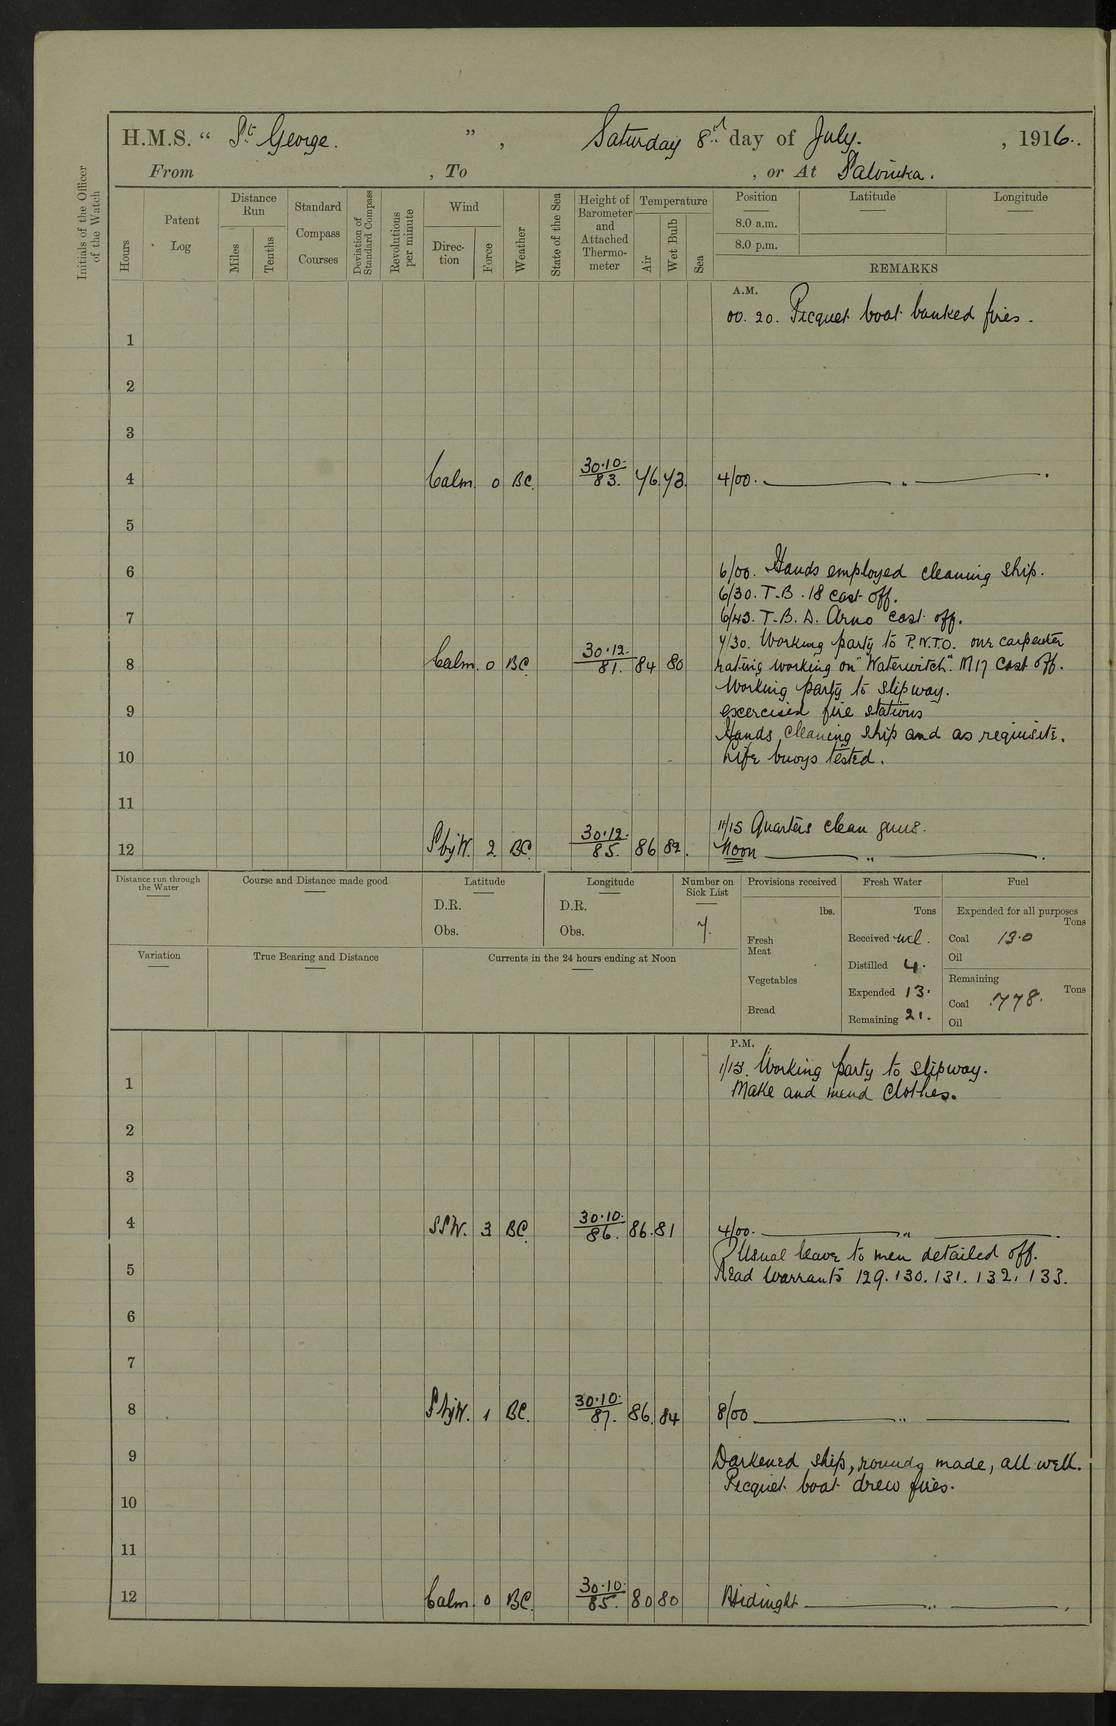 H.M.S. “ St George. ” , Saturday 8th day of July. , 1916.
From , To , or At Salonika.
Initials of the Officer of the Watch
Hours
Patent Log
Distance Run
Miles
Tenths
Standard Compass Courses
Deviation of Standard Compass
Revolutions per minute
Wind
Direc-tion
Force
Weather
State of the Sea
Height of Barometer and Attached Thermo-meter
Temperature
Air
Wet Bulb
Sea
Position Latitude Longitude
8.0 a.m.
8.0 p.m.
REMARKS
A.M.
00. 20. Picquet boat banked fires.
1
2
3
4 Calm. 0 BC. 30.10. 83. 76. 73. 4/00. ,,
5
6 6/00. Hands employed cleaning ship.
6/30. T.B. 18 cast off.
7 6/45. T.B.D. Arno cast off.
7/30. Working party to P.N.T.O. one carpenter
8 Calm. 0 BC. 30.12. 81. 84 80 rating working on "Waterwitch". M17 cast off.
Working party to slipway.
9 exercised fire stations
Hands cleaning ship and as requisite.
10 Life buoys tested.
11
11/15 Quarters clean guns.
12 S by W. 2 BC. 30.12. 85. 86 82. Noon ,,
Distance run through the Water
Course and Distance made good
Latitude
D.R.
Obs.
Longitude
D.R.
Obs.
Number on Sick List
7.
Provisions received
lbs.
Fresh Meat
Vegetables
Bread
Fresh Water
Tons
Received nil.
Distilled 4.
Expended 13.
Remaining 21.
Fuel
Expended for all purposes
Tons
Coal 13.0
Oil
Remaining
Tons
Coal 778.
Oil
Variation
True Bearing and Distance
Currents in the 24 hours ending at Noon
P.M.
1/15. Working party to slipway.
1 Make and mend clothes.
2
3
4 SSW. 3 BC. 30.10. 86. 86. 81 4/00. ,,
Usual leave to men detailed off.
5 Read Warrants 129. 130. 131. 132. 133.
6
7
8 S by W. 1 BC. 30.10. 87. 86. 84 8/00 ,,
9 Darkened ship, rounds made, all well.
Picquet boat drew fires.
10
11
12 Calm. 0 BC. 30.10. 85. 80 80 Midnight ,,